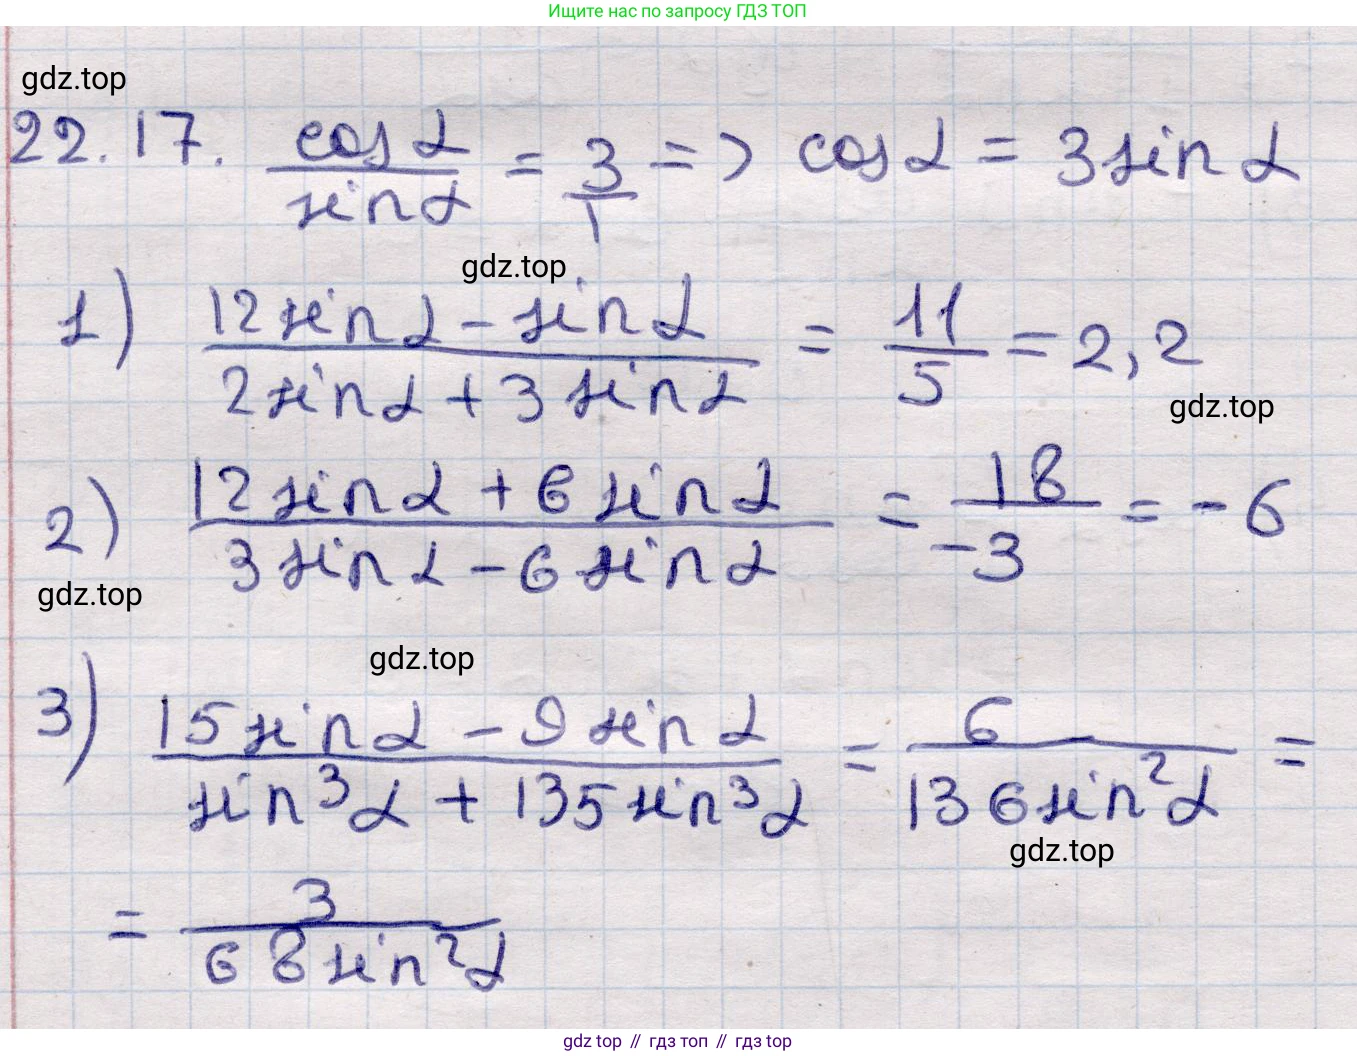 Ищите нас по запросу ГДЗ ТОП
gdz.top
22.17. cos α / sin α = 3/1 => cos α = 3 sin α
gdz.top
1) (12 sin α - sin α) / (2 sin α + 3 sin α) = 11/5 = 2,2
gdz.top
2) (12 sin α + 6 sin α) / (3 sin α - 6 sin α) = 18/-3 = -6
gdz.top
gdz.top
3) (15 sin α - 9 sin α) / (sin³ α + 135 sin³ α) = 6 / (136 sin² α) =
gdz.top
= 3 / (68 sin² α)
gdz top // гдз топ // гдз top